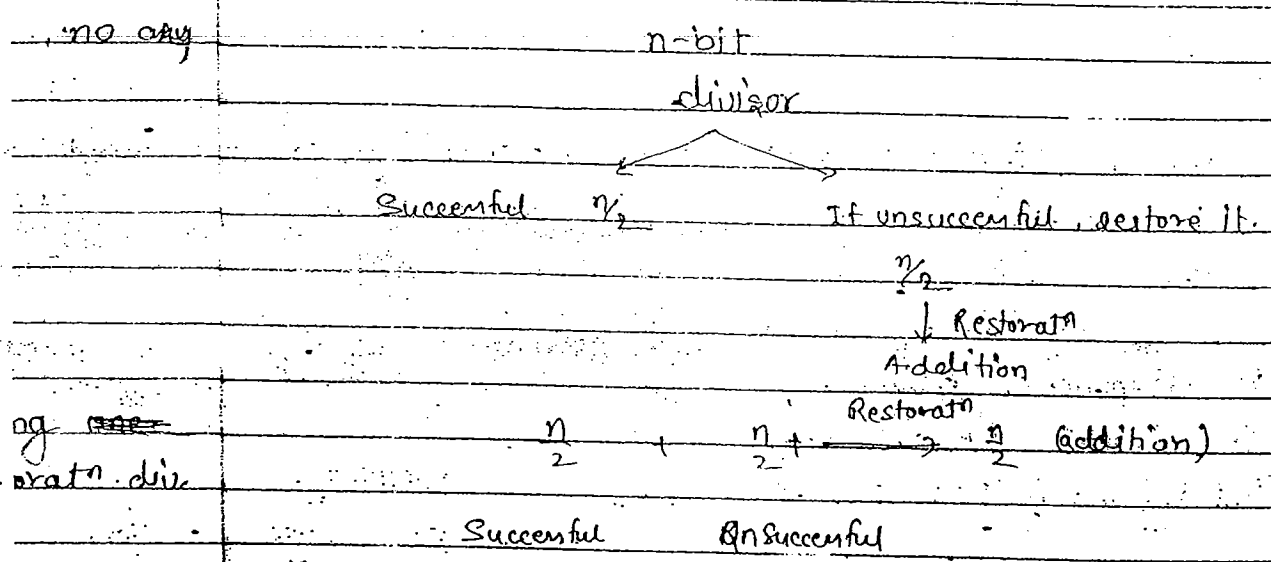 , no any
n-bit
divisor
Successful n/2 If unsuccessful, restore it.
n/2
↓ Restoratn
Addition
Restoratn
ng
n/2 + n/2 + → n/2 (addition)
oratn. div.
Successful Unsuccessful